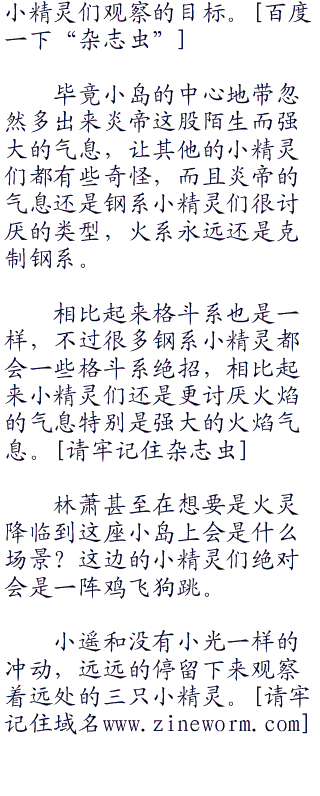 小精灵们观察的目标。[百度
一下“杂志虫”]
毕竟小岛的中心地带忽
然多出来炎帝这股陌生而强
大的气息，让其他的小精灵
们都有些奇怪，而且炎帝的
气息还是钢系小精灵们很讨
厌的类型，火系永远还是克
制钢系。
相比起来格斗系也是一
样，不过很多钢系小精灵都
会一些格斗系绝招，相比起
来小精灵们还是更讨厌火焰
的气息特别是强大的火焰气
息。[请牢记住杂志虫]
林萧甚至在想要是火灵
降临到这座小岛上会是什么
场景？这边的小精灵们绝对
会是一阵鸡飞狗跳。
小遥和没有小光一样的
冲动，远远的停留下来观察
着远处的三只小精灵。[请牢
记住域名www.zineworm.com]